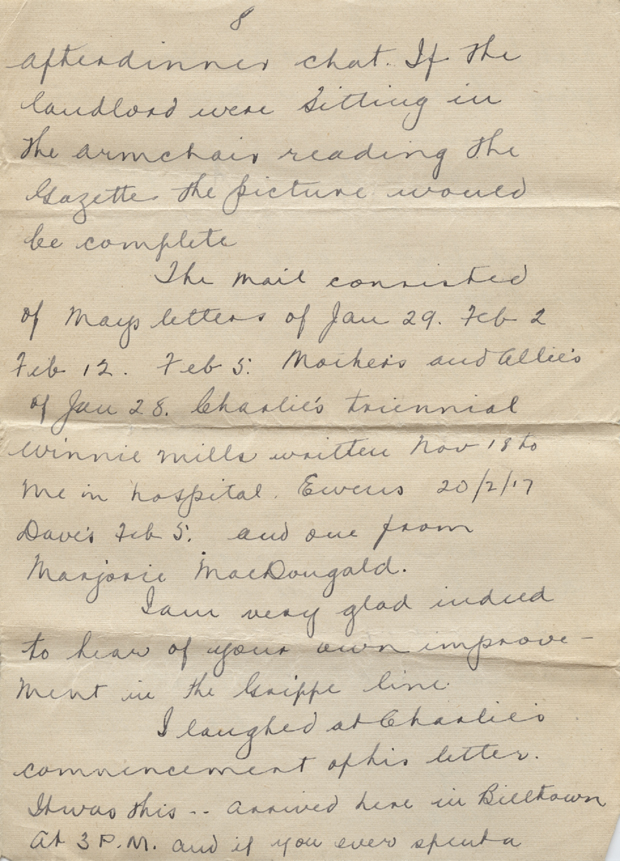 8
afterdinner chat. If the
landlord were sitting in
the armchair reading the
Gazette the picture would
be complete
The mail consisted
of Mays letters of Jan 29. Feb 2
Feb 12. Feb 5. Mother's and Allie's
of Jan 28. Charlie's triennial
Winnie Mills written Nov 18 to
me in hospital. Ewens 20/2/17
Dave's Feb 5. and one from
Marjorie MacDougald.
I am very glad indeed
to hear of your own improve-
ment in the Grippe line.
I laughed at Charlie's
commencement of his letter.
It was this -- arrived here in Billtown
At 3 P.M. and if you ever spent a